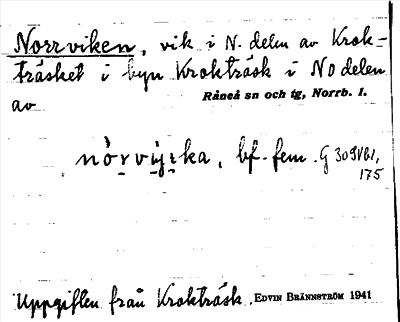 Norrviken, vik i N. delen av Krok-
träsket i byn Krokträsk i NO delen
av Råneå sn och tg, Norrb. l.
bf. fem. G 309 VB1,
175
Uppgiften från Krokträsk. EDVIN BRÄNNSTRÖM 1941